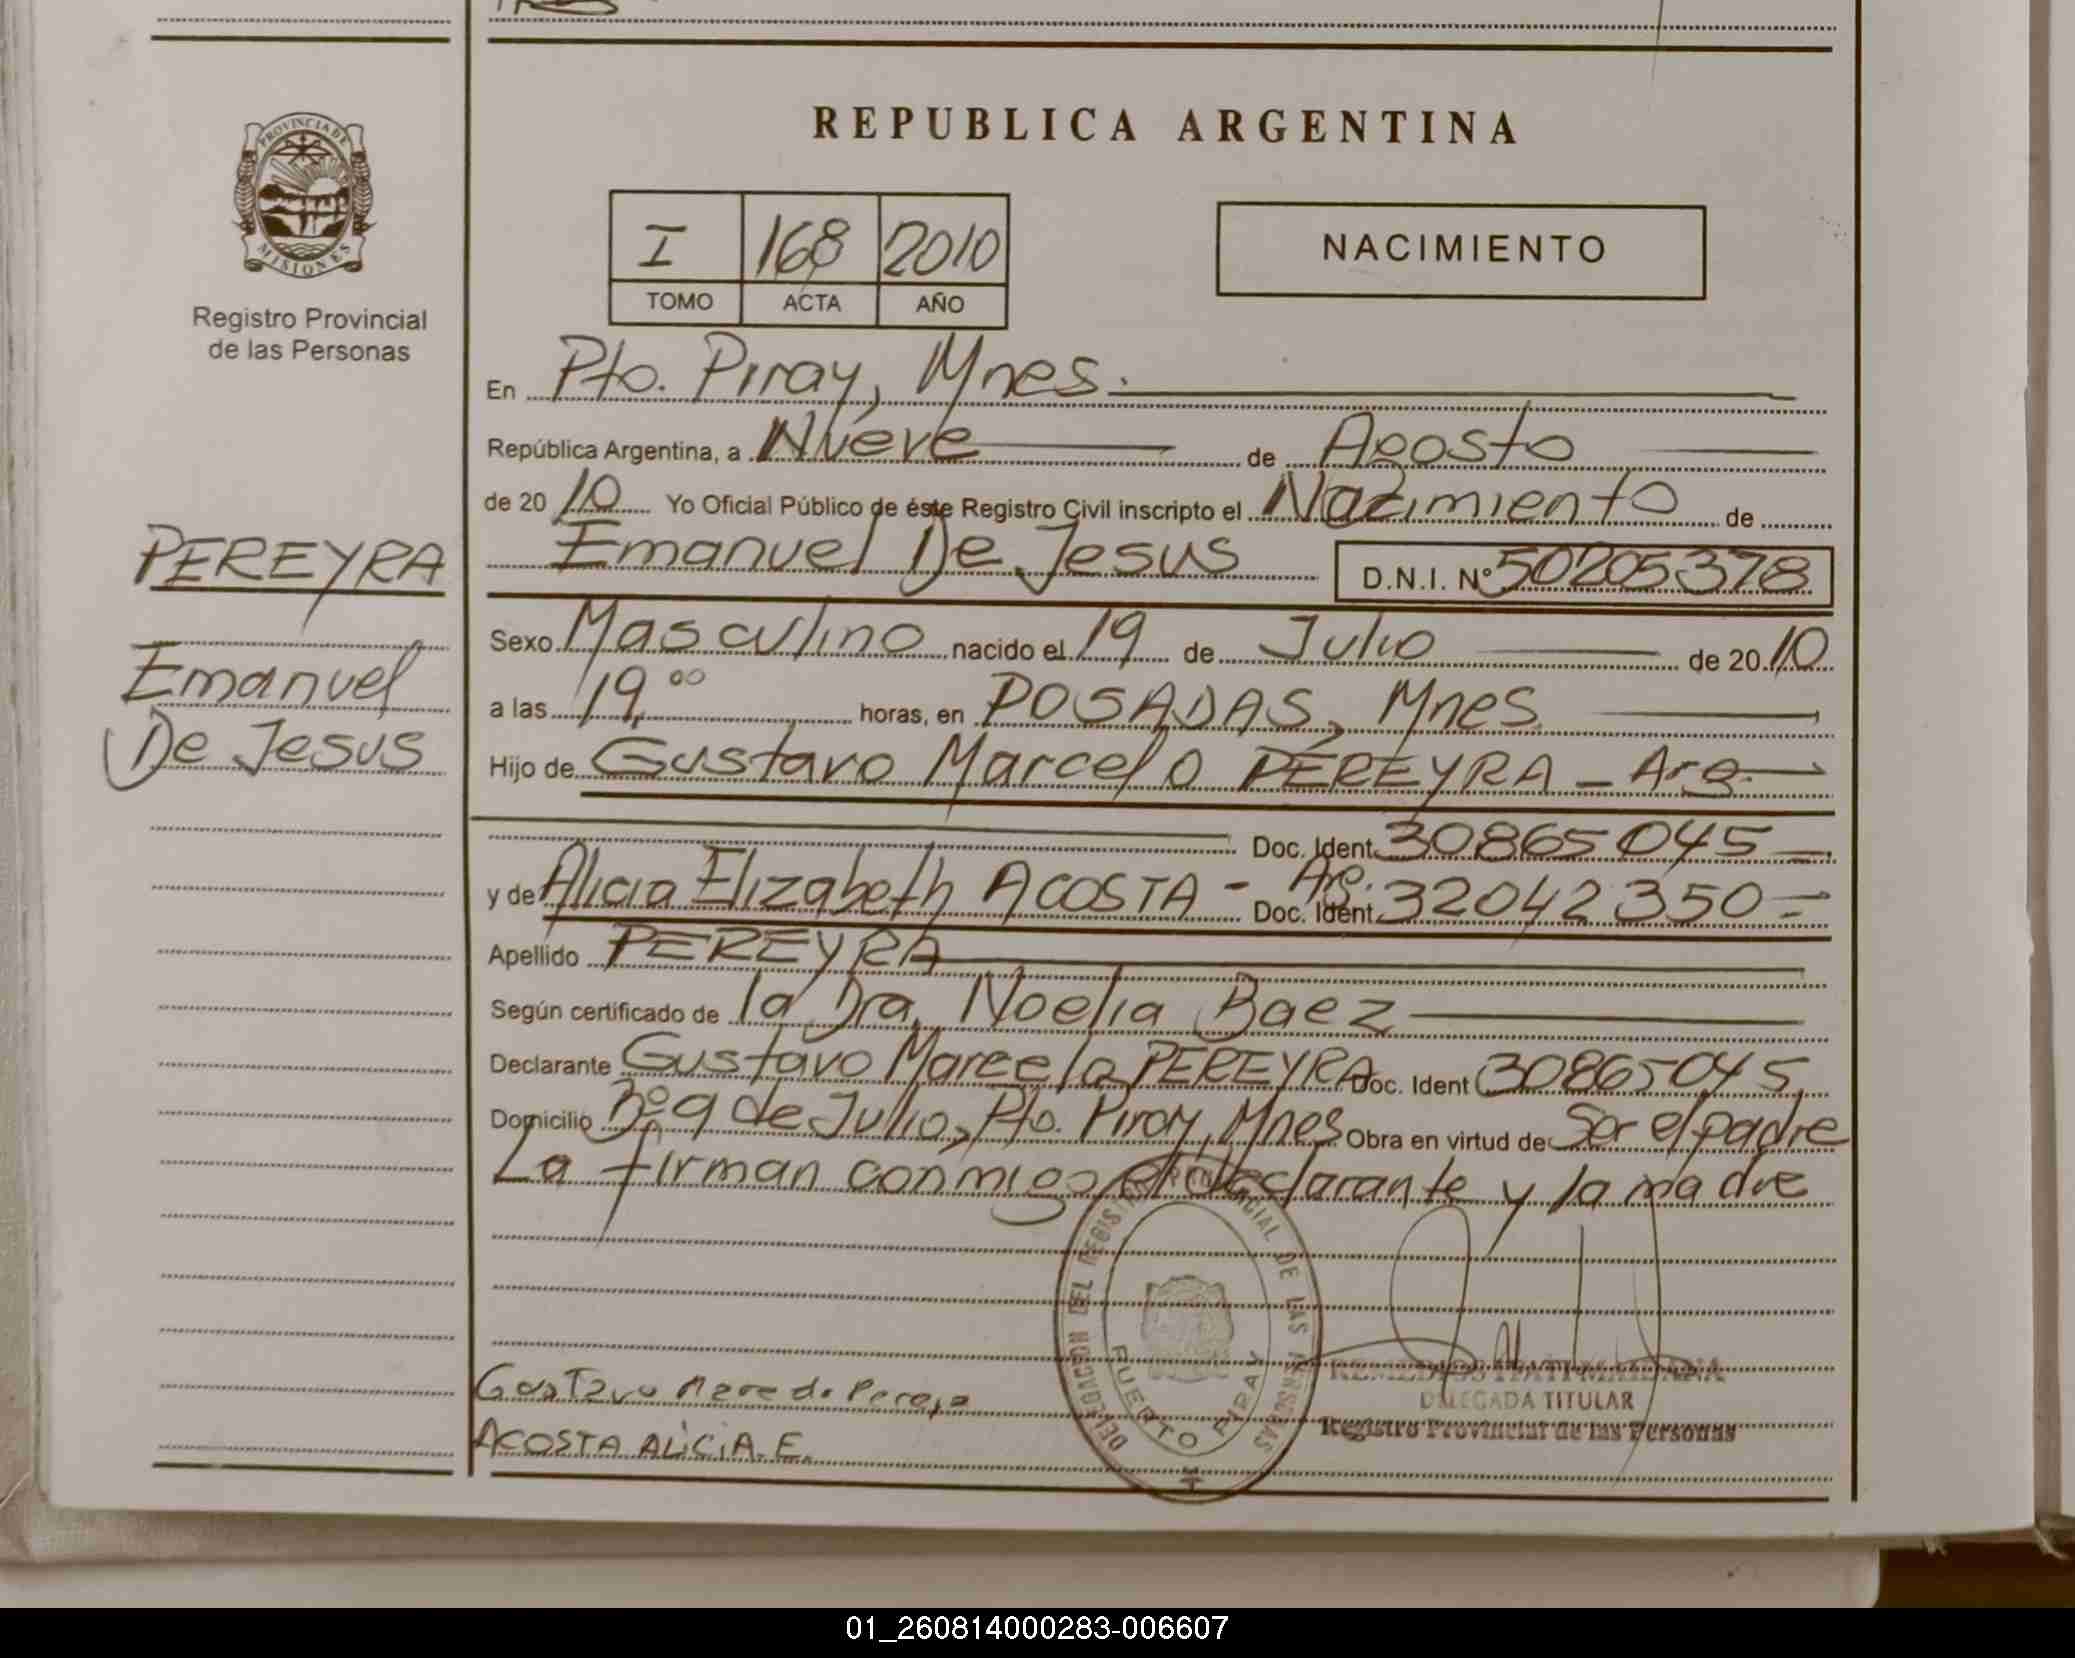 PROVINCIA DE
MISIONES
Registro Provincial
de las Personas
PEREYRA
Emanuel
De Jesus
REPUBLICA ARGENTINA
I 168 2010
TOMO ACTA AÑO
NACIMIENTO
En Pto. Piray, Mnes.
República Argentina, a Nueve de Agosto
de 2010 Yo Oficial Público de éste Registro Civil inscripto el Nacimiento de
Emanuel De Jesus D.N.I. Nº 50205378
Sexo Masculino nacido el 19 de Julio de 2010
a las 19,00 horas, en POSADAS, Mnes
Hijo de Gustavo Marcelo PEREYRA - Arg.
Doc. Ident. 30865045
y de Alicia Elizabeth ACOSTA - Arg. Doc. Ident. 32042350
Apellido PEREYRA
Según certificado de la Dra. Noelia Baez
Declarante Gustavo Marcelo PEREYRA Doc. Ident 30865045
Domicilio Bº 9 de Julio, Pto. Piray, Mnes Obra en virtud de Ser el padre
La firman conmigo el declarante y la madre
DELEGACION DEL REGISTRO PROVINCIAL DE LAS PERSONAS
PUERTO PIRAY
DELEGADA TITULAR
Registro Provincial de las Personas
Gustavo
ACOSTA ALICIA. E.
01_260814000283-006607